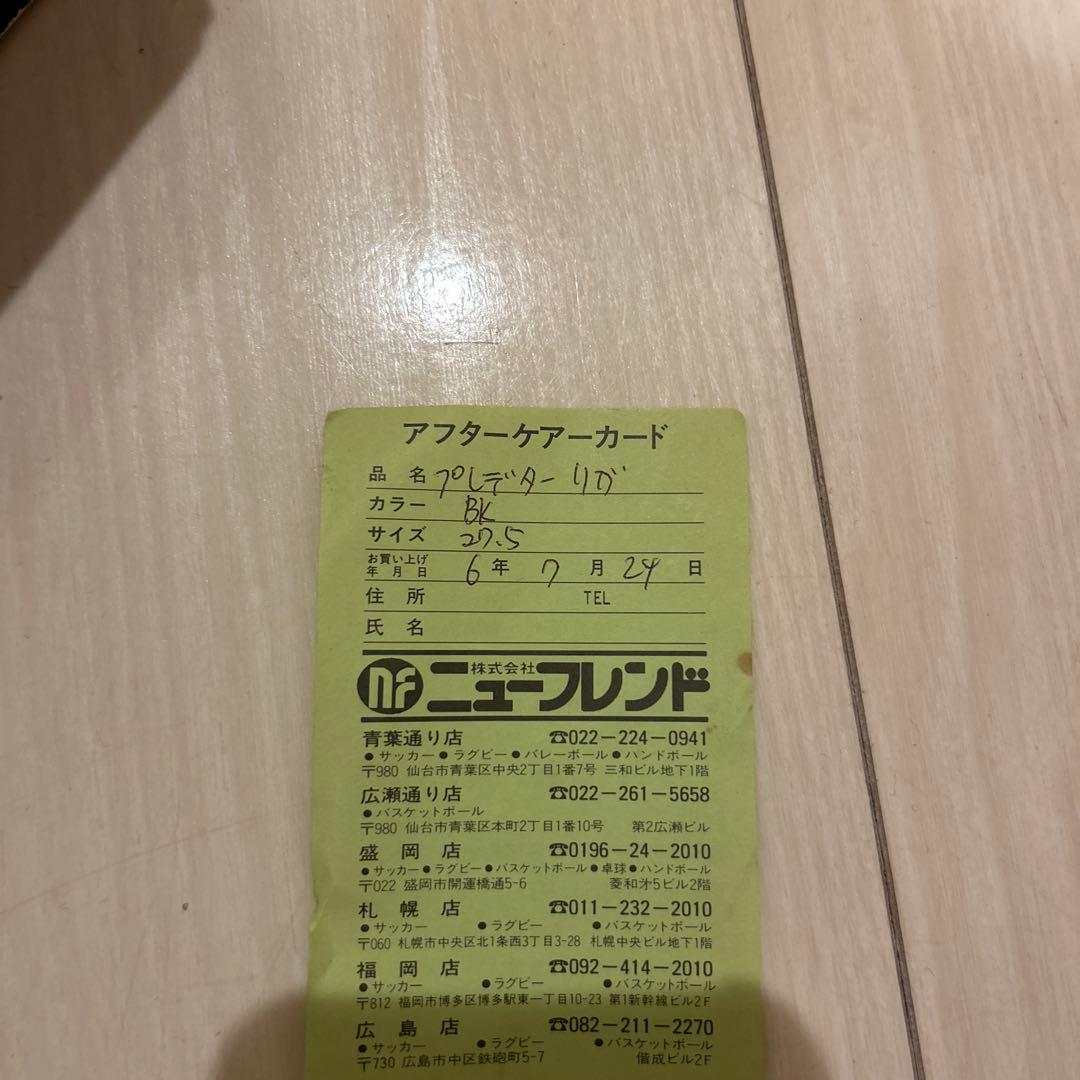 アフターケアーカード
品名 プレデター リガ
カラー BK
サイズ 27.5
お買い上げ年月日 6年 7月 24日
住所 TEL
氏名
nf 株式会社 ニューフレンド
青葉通り店 ☎022-224-0941
●サッカー●ラグビー●バレーボール●ハンドボール
〒980 仙台市青葉区中央2丁目1番7号 三和ビル地下1階
広瀬通り店 ☎022-261-5658
●バスケットボール
〒980 仙台市青葉区本町2丁目1番10号 第2広瀬ビル
盛岡店 ☎0196-24-2010
●サッカー●ラグビー●バスケットボール●卓球●ハンドボール
〒022 盛岡市開運橋通5-6 菱和才5ビル2階
札幌店 ☎011-232-2010
●サッカー ●ラグビー ●バスケットボール
〒060 札幌市中央区北1条西3丁目3-28 札幌中央ビル地下1階
福岡店 ☎092-414-2010
●サッカー ●ラグビー ●バスケットボール
〒812 福岡市博多区博多駅東一丁目10-23 第1新幹線ビル2F
広島店 ☎082-211-2270
●サッカー ●ラグビー ●バスケットボール
〒730 広島市中区鉄砲町5-7 偕成ビル2F